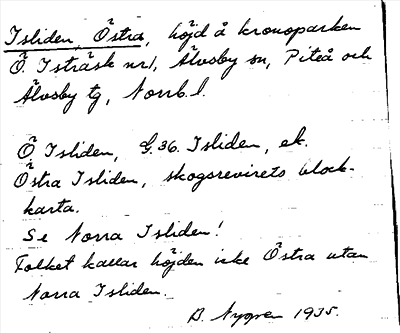 Isliden, Östra, höjd å kronoparken
Ö. Isträsk nr 1, Älvsby sn, Piteå och
Älvsby tg, Norrb. l.
Ö Isliden, G.36. Isliden, ek.
Östra Isliden, skogsrevirets block-
karta.
Se Norra Isliden!
Folket kallar höjden icke Östra utan
Norra Isliden.
B. Nygren 1935.